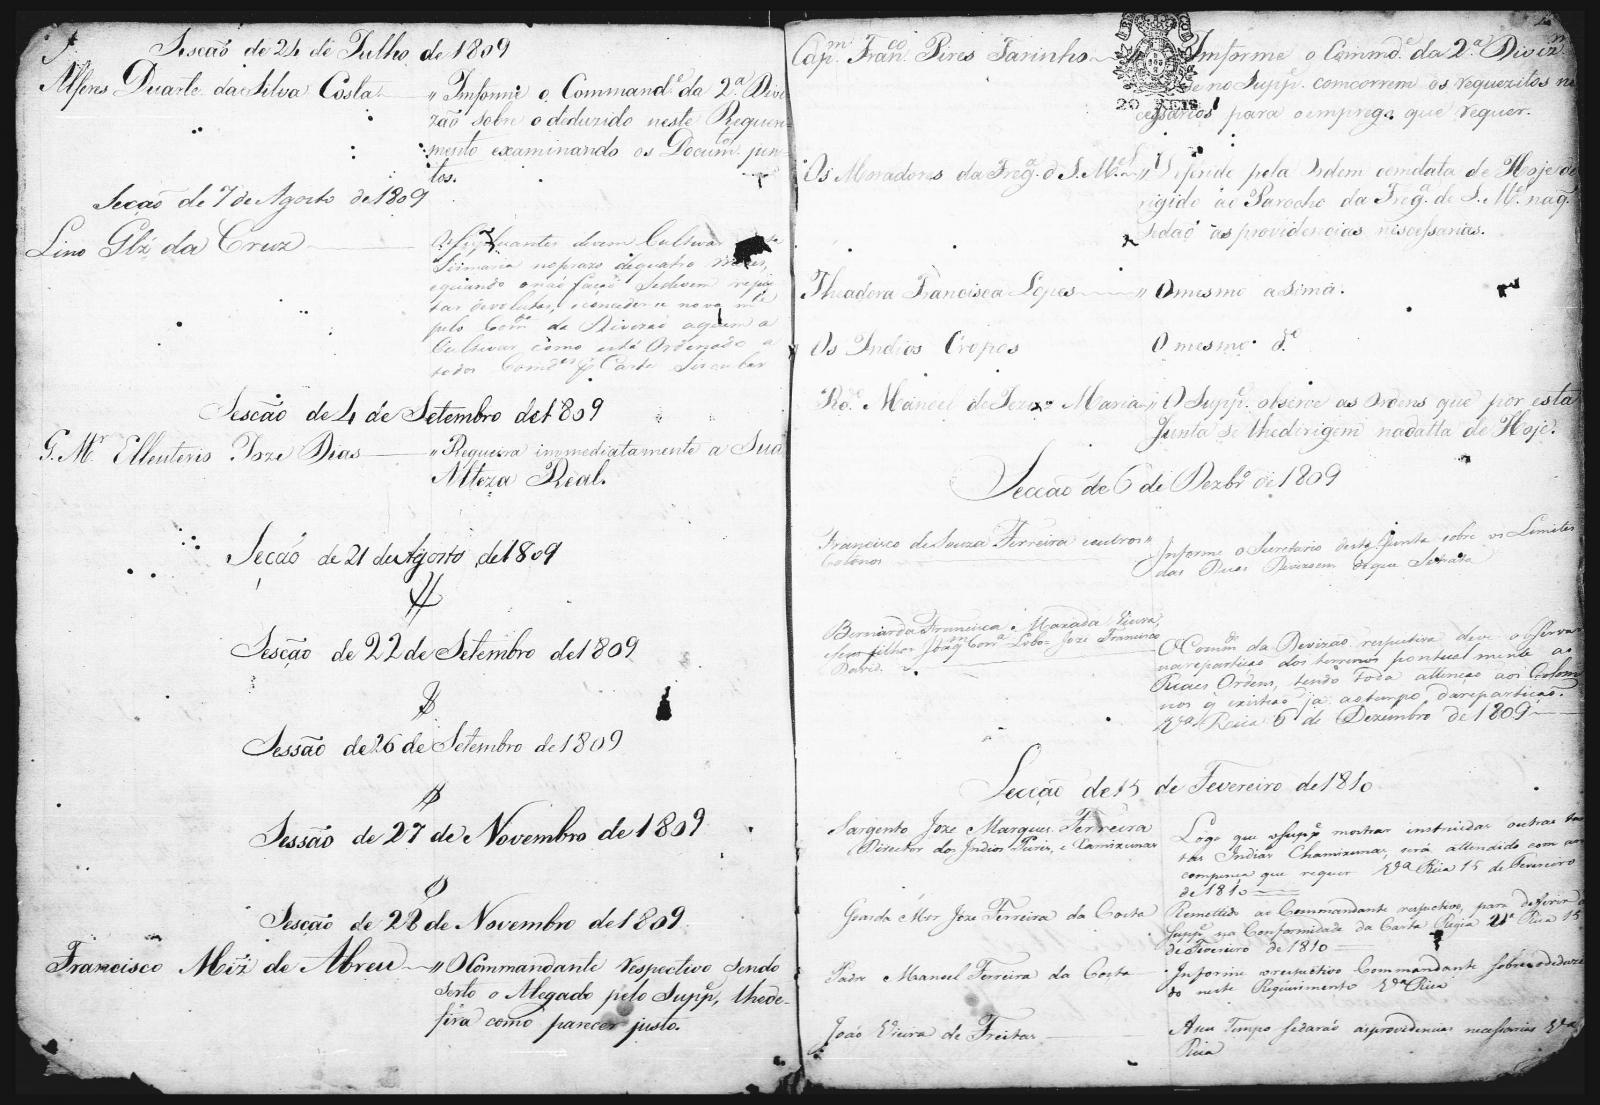 Sescão de 24 de Julho de 1809
Alferes Duarte da Silva Costa " Informe o Command.e da 2.a Divi
zão sobre o deduzido neste Requeri
mento examinando os Docum.tos jun
tos.
Secção de 7 de Agosto de 1809
Lino Glz da Cruz
devem Cultivar
Sesmaria no prazo de quatro mezes,
equando o não fação se devem repu
tar devolutas, e conceder-se nova m.te
pelo Com.de da Divizão aquem a
Cultivar, como está Ordenado a
todos Comd.es p.r Carta Sircular
Sescão de 4 de Setembro de 1809
G. M.r Elleuterio Joze Dias " Requeira immediatamente a Sua
Alteza Real.
Seção de 21 de Agosto de 1809
Sesção de 22 de Setembro de 1809
Sessão de 26 de Setembro de 1809
Sessão de 27 de Novembro de 1809
Sesção de 28 de Novembro de 1809
Francisco Miz de Abreu " O Commandante respectivo sendo
serto o Alegado pelo Supp.e, lhe de-
fira como parecer justo.
Cap.m Fran.co Pires Farinho Informe o Commd.e da 2.a Diviz.m
20 REIS
se no Supp.e concorrem os requezitos ne
cessarios para o emprego que requer.
Os Moradores da Freg.a de S. M.el " Diferido pela Ordem comdata de Hoje de
rigido ao Parocho da Freg.a de S. M.el na q.
sedão as providencias nescessarias.
Theadora Francisca Lopes " O mesmo asima.
Os Indios Cropos O mesmo. d.o
R.do Manoel de Jezus Maria " O Supp.e observe as Ordens que por esta
Junta se lhe derigem nadatta de Hoje.
Secção de 6 de Dezbr.o de 1809
Francisco de Souza Ferreira e outros "
Colonos
Informe o Secretario desta Junta sobre os Limites
das Duas Divizoens de que Setrata
Bernarda Francisca e Mazada Vieira,
e seus filhos Joaq.m Corr.a Lobo = Joze Francisco
David.
O Com.de da Devizão respectiva deve observar
na repartição dos terrenos pontualmente as
Reaes Ordens, tendo toda attenção aos Colon
nos q existião já ao tempo da repartição.
V.a Rica 6 de Dezembro de 1809
Secção de 15 de Fevereiro de 1810
Sargento Joze Marques Ferreira
Director dos Indios Puris, e Xamixunas
Logo que o Supp.e mostrar instruidas outras tan
tas Indias Chamixunas, será attendido com a re
compença que requer V.a Rica 15 de Fevereiro
de 1810
Goarda Mor Joze Ferreira da Costa
Remettido ao Commandante respectivo, para deferir ao
Supp.e na Conformidade da Carta Regia V.a Rica 15
de Fevereiro de 1810
Padre Manuel Ferreira da Costa
Informe o respectivo Commandante sobre o deduzi
do neste Requirimento V.a Rica
João Vieira de Freitas
A seu Tempo se darão as providencias necessarias V.a
Rica